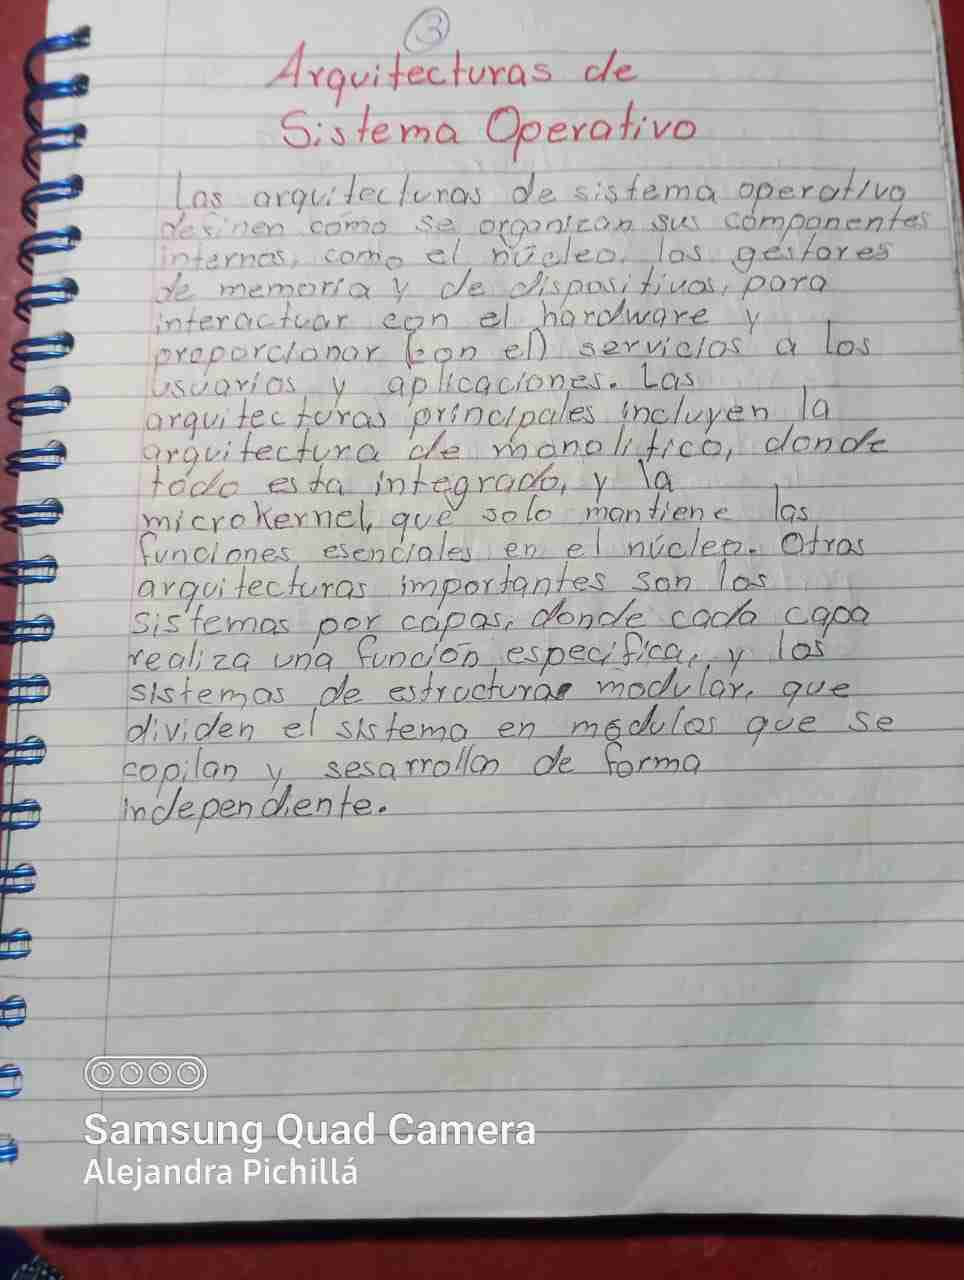 3
Arquitecturas de
Sistema Operativo
Las arquitecturas de sistema operativo
definen como se organizan sus componentes
internos, como el núcleo, los gestores
de memoria y de dispositivos, para
interactuar con el hardware y
proporcionar (con el) servicios a los
usuarios y aplicaciones. Las
arquitecturas principales incluyen la
arquitectura de monolitico, donde
todo esta integrado, y la
microkernel, que solo mantiene las
funciones esenciales en el núcleo. Otras
arquitecturas importantes son los
sistemas por capas, donde cada capa
realiza una función especifica, y los
sistemas de estructuras modular, que
dividen el sistema en módulos que se
copilan y sesarrollan de forma
independiente.
Samsung Quad Camera
Alejandra Pichillá